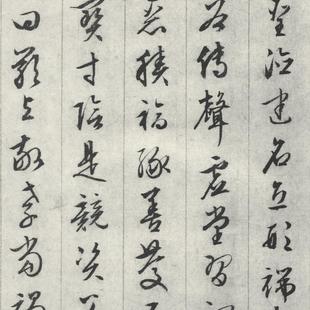 聖德建名立形端
谷傳聲虛堂習
惡積福緣善慶
寶寸陰是競資
曰嚴與敬孝當竭